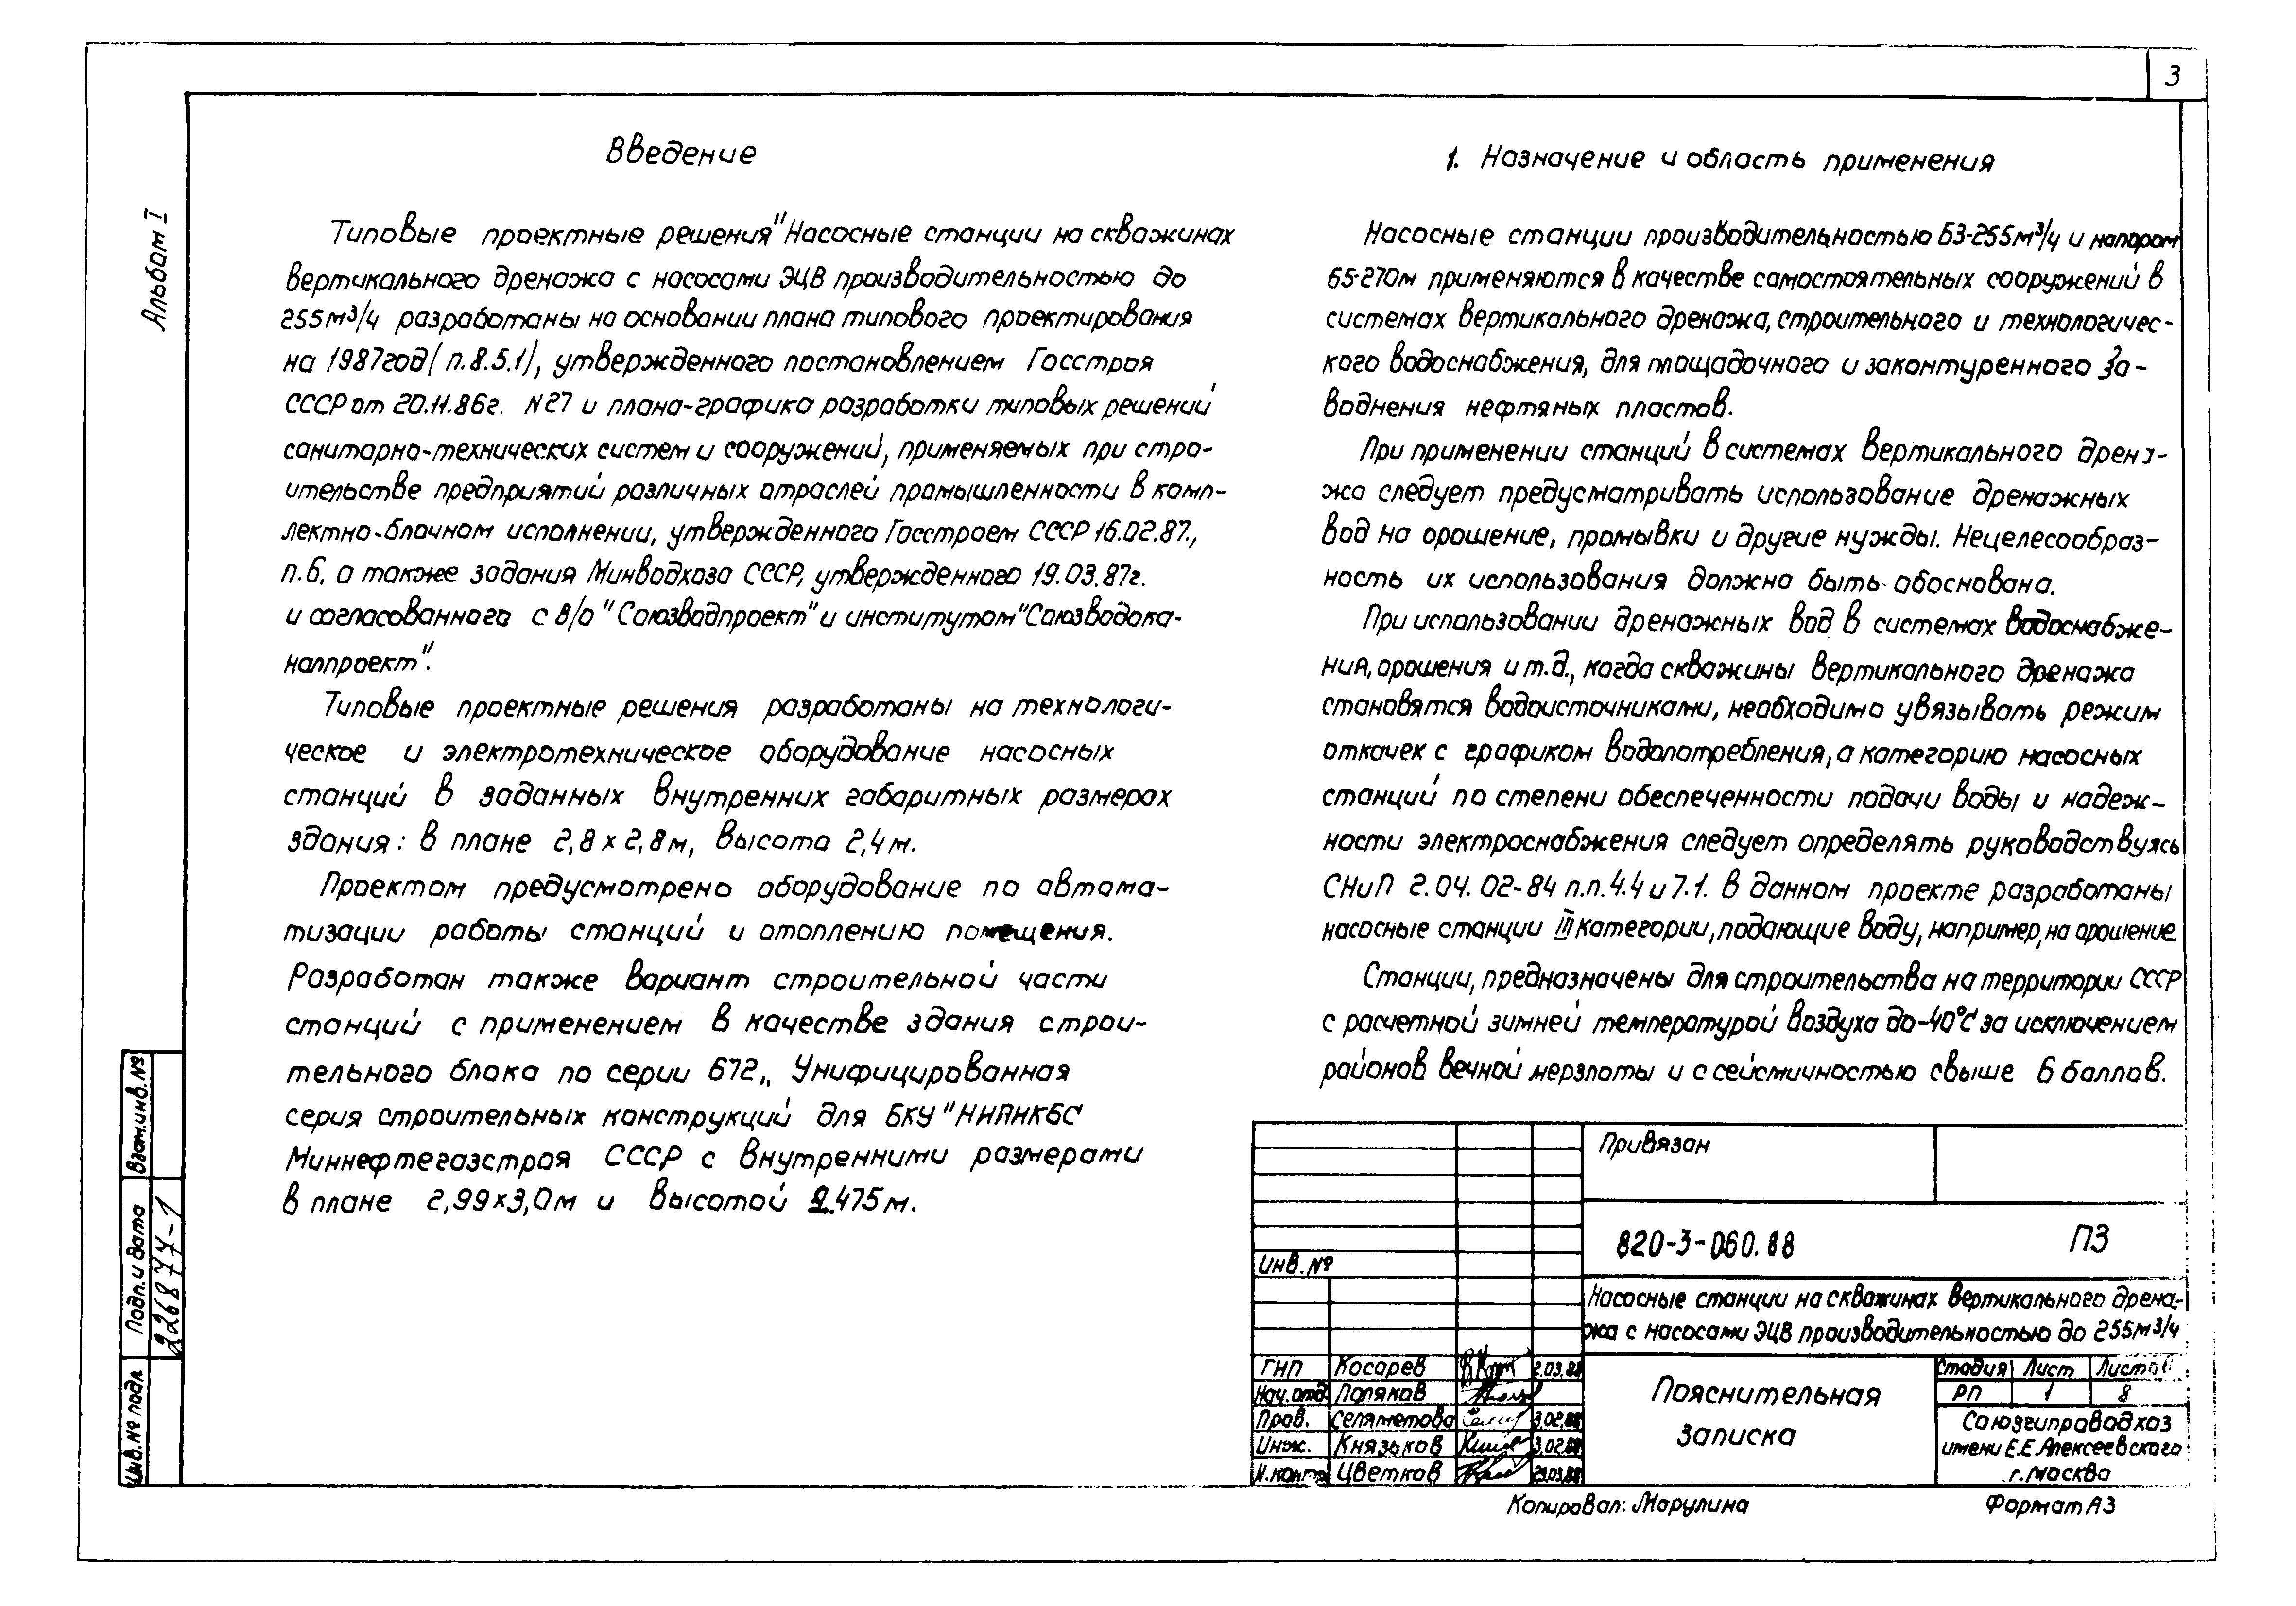 3
Альбом I
Введение
Типовые проектные решения "Насосные станции на скважинах
вертикального дренажа с насосами ЭЦВ производительностью до
255м³/ч разработаны на основании плана типового проектирования
на 1987год (п.8.5.1), утвержденного постановлением Госстроя
СССР от 20.11.86г. №27 и плана-графика разработки типовых решений
санитарно-технических систем и сооружений, применяемых при стро-
ительстве предприятий различных отраслей промышленности в комп-
лектно-блочном исполнении, утвержденного Госстроем СССР 16.02.87.,
п.6, а также задания Минводхоза СССР, утвержденного 19.03.87г.
и согласованного с в/о "Союзводпроект" и институтом "Союзводока-
налпроект".
Типовые проектные решения разработаны на технологи-
ческое и электротехническое оборудование насосных
станций в заданных внутренних габаритных размерах
здания: в плане 2,8 х 2,8 м, высота 2,4 м.
Проектом предусмотрено оборудование по автома-
тизации работы станций и отоплению помещения.
Разработан также вариант строительной части
станций с применением в качестве здания строи-
тельного блока по серии 672 „ Унифицированная
серия строительных конструкций для БКУ" НИПИКБС
Миннефтегазстроя СССР с внутренними размерами
в плане 2,99х3,0м и высотой 2.475 м.
1. Назначение и область применения
Насосные станции производительностью 63-255м³/ч и напором
65-270м применяются в качестве самостоятельных сооружений в
системах вертикального дренажа, строительного и технологичес-
кого водоснабжения, для площадочного и законтуренного за-
воднения нефтяных пластов.
При применении станций в системах вертикального дрена-
жа следует предусматривать использование дренажных
вод на орошение, промывки и другие нужды. Нецелесообраз-
ность их использования должна быть обоснована.
При использовании дренажных вод в системах водоснабже-
ния, орошения и т.д., когда скважины вертикального дренажа
становятся водоисточниками, необходимо увязывать режим
откачек с графиком водопотребления, а категорию насосных
станций по степени обеспеченности подачи воды и надеж-
ности электроснабжения следует определять руководствуясь
СНиП 2.04.02-84 п.п.4.4 и 7.1. В данном проекте разработаны
насосные станции III категории, подающие воду, например, на орошение
Станции, предназначены для строительства на территории СССР
с расчетной зимней температурой воздуха до -40°С за исключением
районов вечной мерзлоты и с сейсмичностью свыше 6 баллов.
Взам.инв.№
Подп. и дата
226877-1
Инв.№ подл
Привязан
Инв.№
820-3-060.88 ПЗ
Насосные станции на скважинах вертикального дрена-
жа с насосами ЭЦВ производительностью до 255м³/ч
ГИП Косарев 2.03.88
Нач.отд Поляков
Пров. Селяметова 3.02.88
Инж. Князьков 3.02.88
Н.контр Цветков 29.03.88
Пояснительная
записка
Стадия Лист Листов
РП 1 8
Союзгипроводхоз
имени Е.Е.Алексеевского
г.Москва
Копировал: Марулина
Формат А3